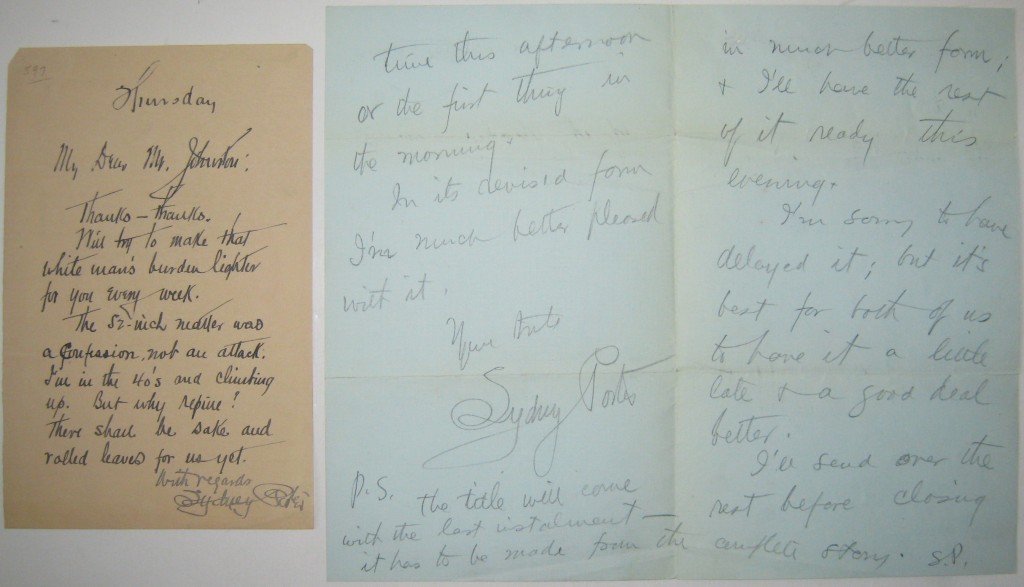 593
Thursday
My Dear Mr. Johnston:
Thanks — thanks.
I'll try to make that
white man's burden lighter
for you every week.
The 52-inch matter was
a confession, not an attack.
I'm in the 40's and climbing
up. But why repine!
There shall be sake and
rolled leaves for us yet.
With regards
Sydney Porter
in much better form;
& I'll have the rest
of it ready this
evening.
I'm sorry to have
delayed it; but it's
best for both of us
to have it a little
late & a good deal
better.
I'll send over the
rest before closing
time this afternoon
or the first thing in
the morning.
In its revised form
I'm much better pleased
with it.
Yours
Sydney Porter
P.S. The title will come
with the last instalment —
it has to be made from the complete story. S.P.